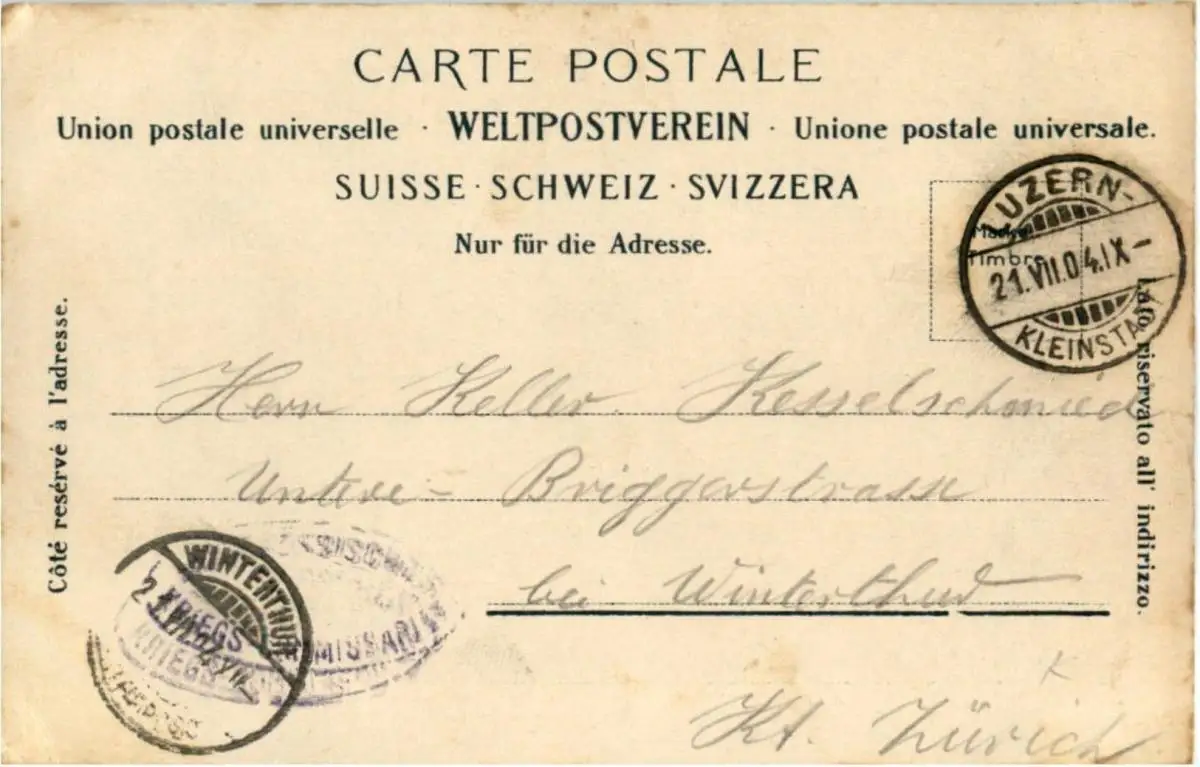 CARTE POSTALE
Union postale universelle · WELTPOSTVEREIN · Unione postale universale.
SUISSE · SCHWEIZ · SVIZZERA
Nur für die Adresse.
Côté resérvé à l'adresse.
Lato riservato all' indirizzo.
Timbre
LUZERN-
21.VII.04.IX-
KLEINSTADT
Herrn Keller. Kesselschmied
Untere- Briggerstrasse
bei Winterthur
Kt. Zürich
WINTERTHUR
KRIEGS
KRIEGS